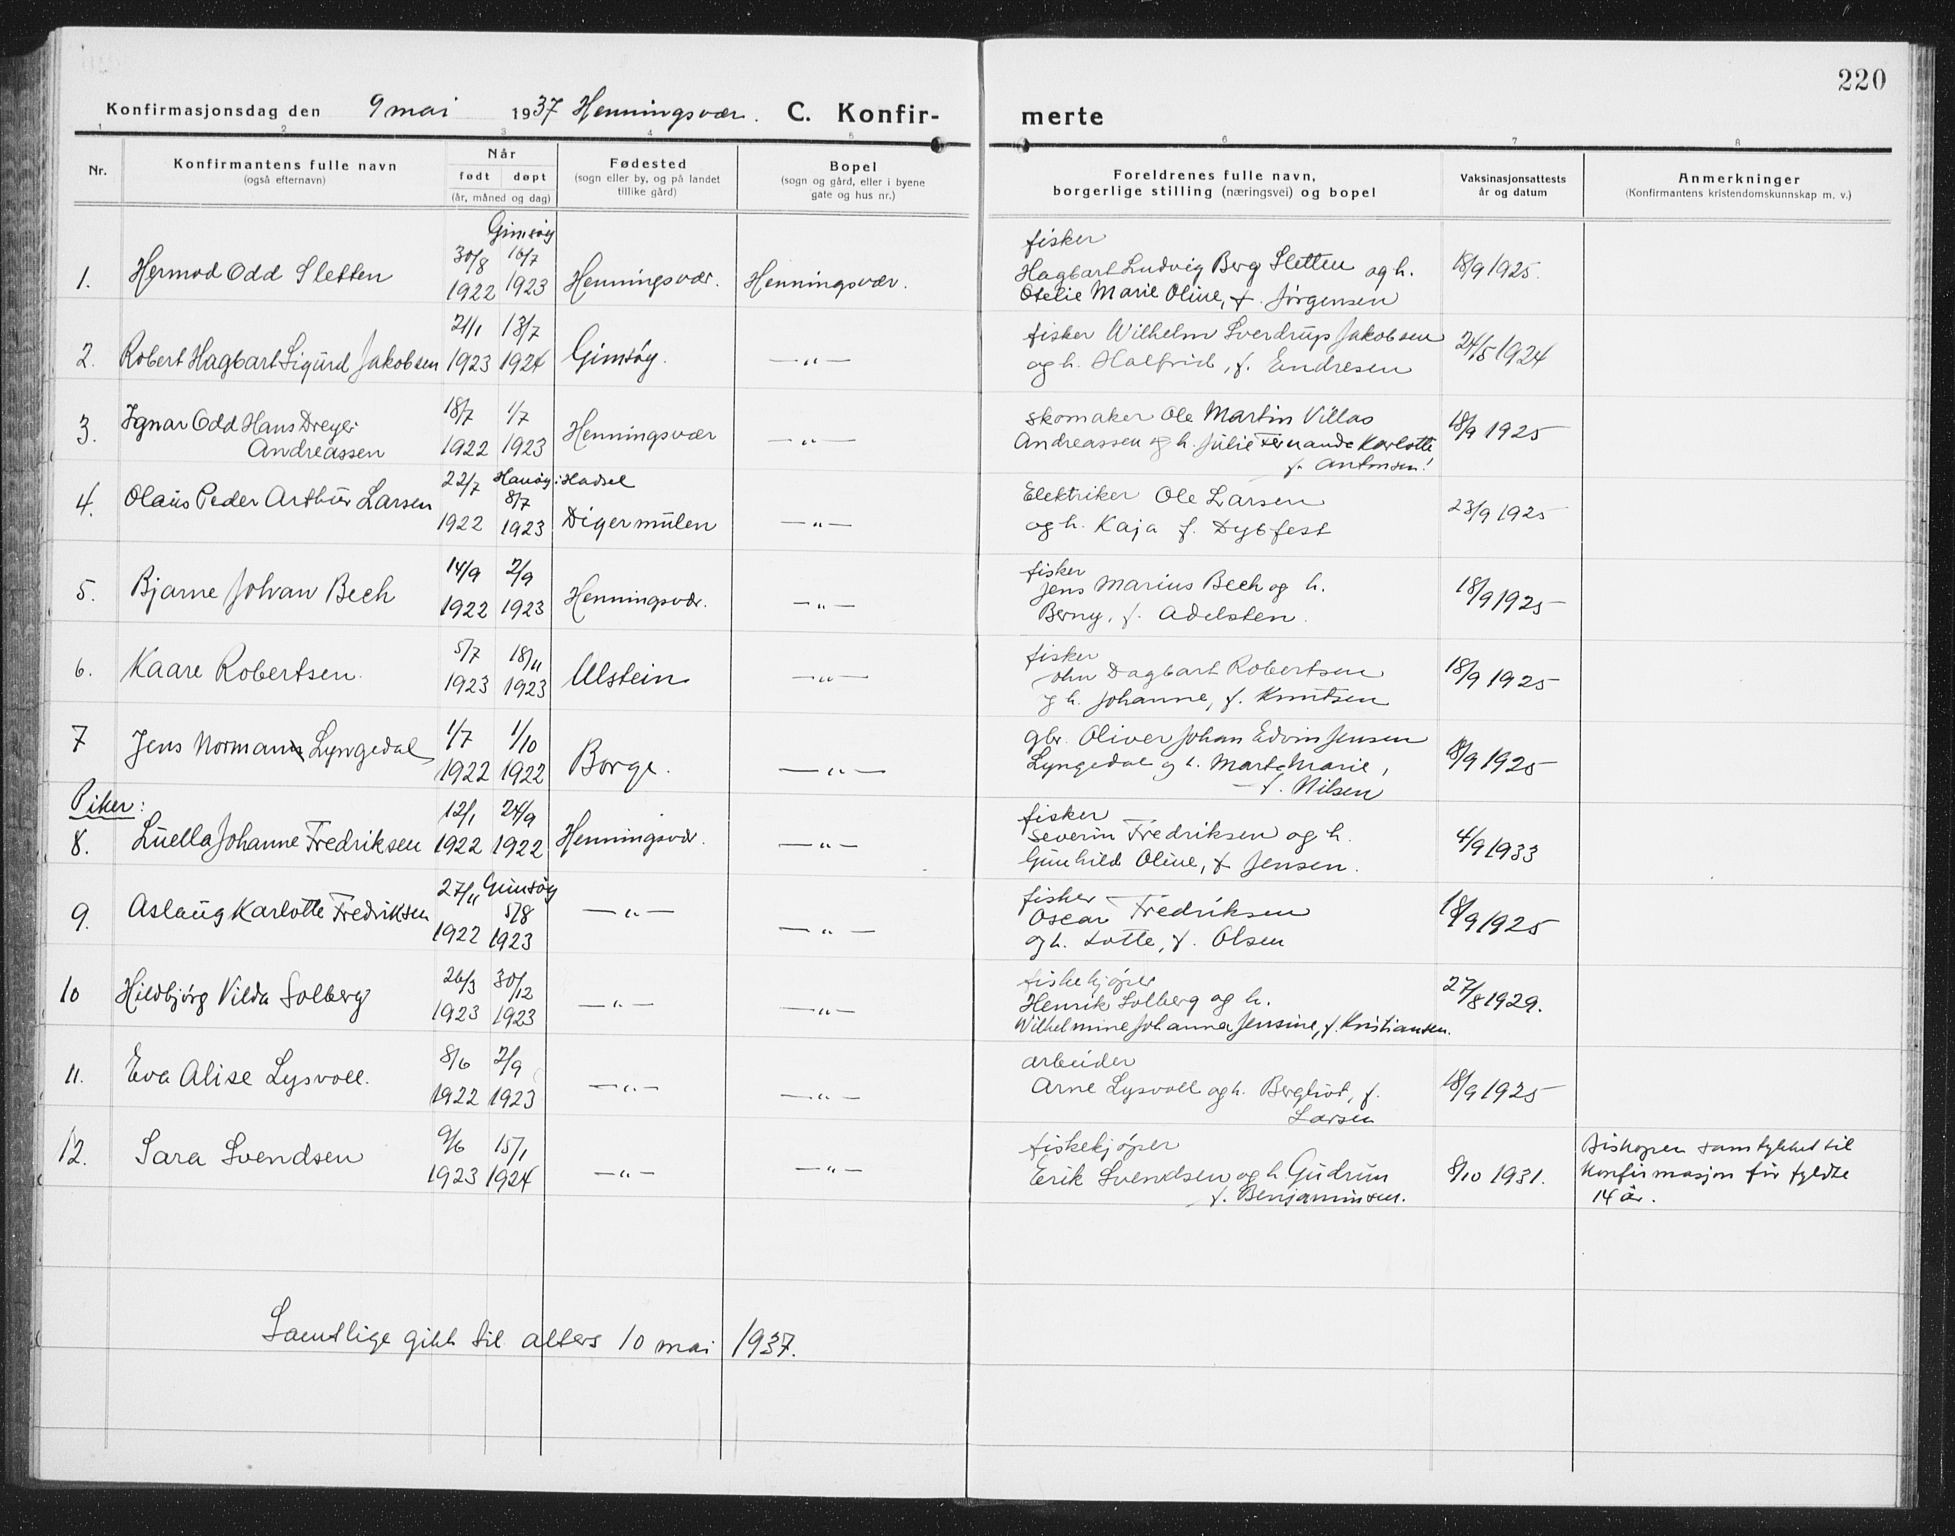 220
Konfirmasjonsdag den 9 mai 1937 Henningsvær. C. Konfirmerte
1 2 3 4 5 6 7 8
Nr.
Konfirmantens fulle navn
(også efternavn)
Når
født døpt
(år, måned og dag)
Fødested
(sogn eller by, og på landet
tillike gård)
Bopel
(sogn og gård, eller i byene
gate og hus nr.)
Foreldrenes fulle navn,
borgerlige stilling (næringsvei) og bopel
Vaksinasjonsattests
år og datum
Anmerkninger
(Konfirmantens kristendomskunnskap m. v.)
Gimsøy
1. Hermod Odd Sletten 30/8 1922 16/7 1923 Henningsvær. Henningsvær.
fisker
Hagbart Ludvig Berg Sletten og h.
Otelie Marie Oline, f. Jørgensen
18/9 1925.
2. Robert Hagbart Sigurd Jakobsen 21/1 1923 13/7 1924 Gimsøy. —"—
fisker Wilhelm Sverdrup Jakobsen
og h. Halfrid, f. Endresen
24/5 1924
3. Ignar Odd Hans Dreyer
Andreassen 18/7 1922 1/7 1923 Henningsvær —"—
skomaker Ole Martin Villas
Andreassen og h. Julie Fernanda Karlotte
f. Antonsen!
18/9 1925
4. Olaus Peder Arthur Larsen 22/7 1922 Hanøy i Hadsel 8/7 1923 Digermulen —"—
Elektriker Ole Larsen
og h. Kaja f. Dybfest
23/9 1925
5. Bjarne Johan Bech 14/9 1922 2/9 1923 Henningsvær. —"—
fisker
Jens Marius Bech og h.
Berny, f. Adelsten.
18/9 1925
6. Kaare Robertsen. 5/7 1923 18/11 1923 Ulstein —"—
fisker
John Dagbart Robertsen
og h. Johanne, f. Knutsen
18/9 1925
7 Jens Norman Lyngedal 1/7 1922 1/10 1922 Borge. —"—
gbr. Oliver Johan Edvin Jensen
Lyngedal og h. Marta Marie,
f. Nilsen
18/9 1925
Piker:
8. Luella Johanne Fredriksen 12/1 1922 24/9 1922 Henningsvær. —"—
fisker
Severin Fredriksen og h.
Gunhild Oline, f. Jensen.
4/9 1933
9. Aslaug Karlotte Fredriksen 27/11 1922 Gimsøy 5/8 1923 —"— —"—
fisker
Oscar Fredriksen
og h. Lotte, f. Olsen
18/9 1925
10 Hildbjørg Vilda Solberg 26/3 1923 30/12 1923 —"— —"—
fiskekjøper
Henrik Solberg og h.
Wilhelmine Johanna Jensine, f. Kristiansen.
27/8 1929.
11. Eva Alise Lysvoll. 8/6 1922 2/9 1923 —"— —"—
arbeider
Arne Lysvoll og h. Bergliot, f.
Larsen
18/9 1925
12. Sara Svendsen 9/6 1923 15/1 1924 —"— —"—
fiskekjøper
Erik Svendsen og h. Gudrun
f. Benjaminsen.
8/10 1931.
Biskopen samtykket til
konfirmasjon før fyldte
14 år.
Samtlige gikk til alters 10 mai 1937.